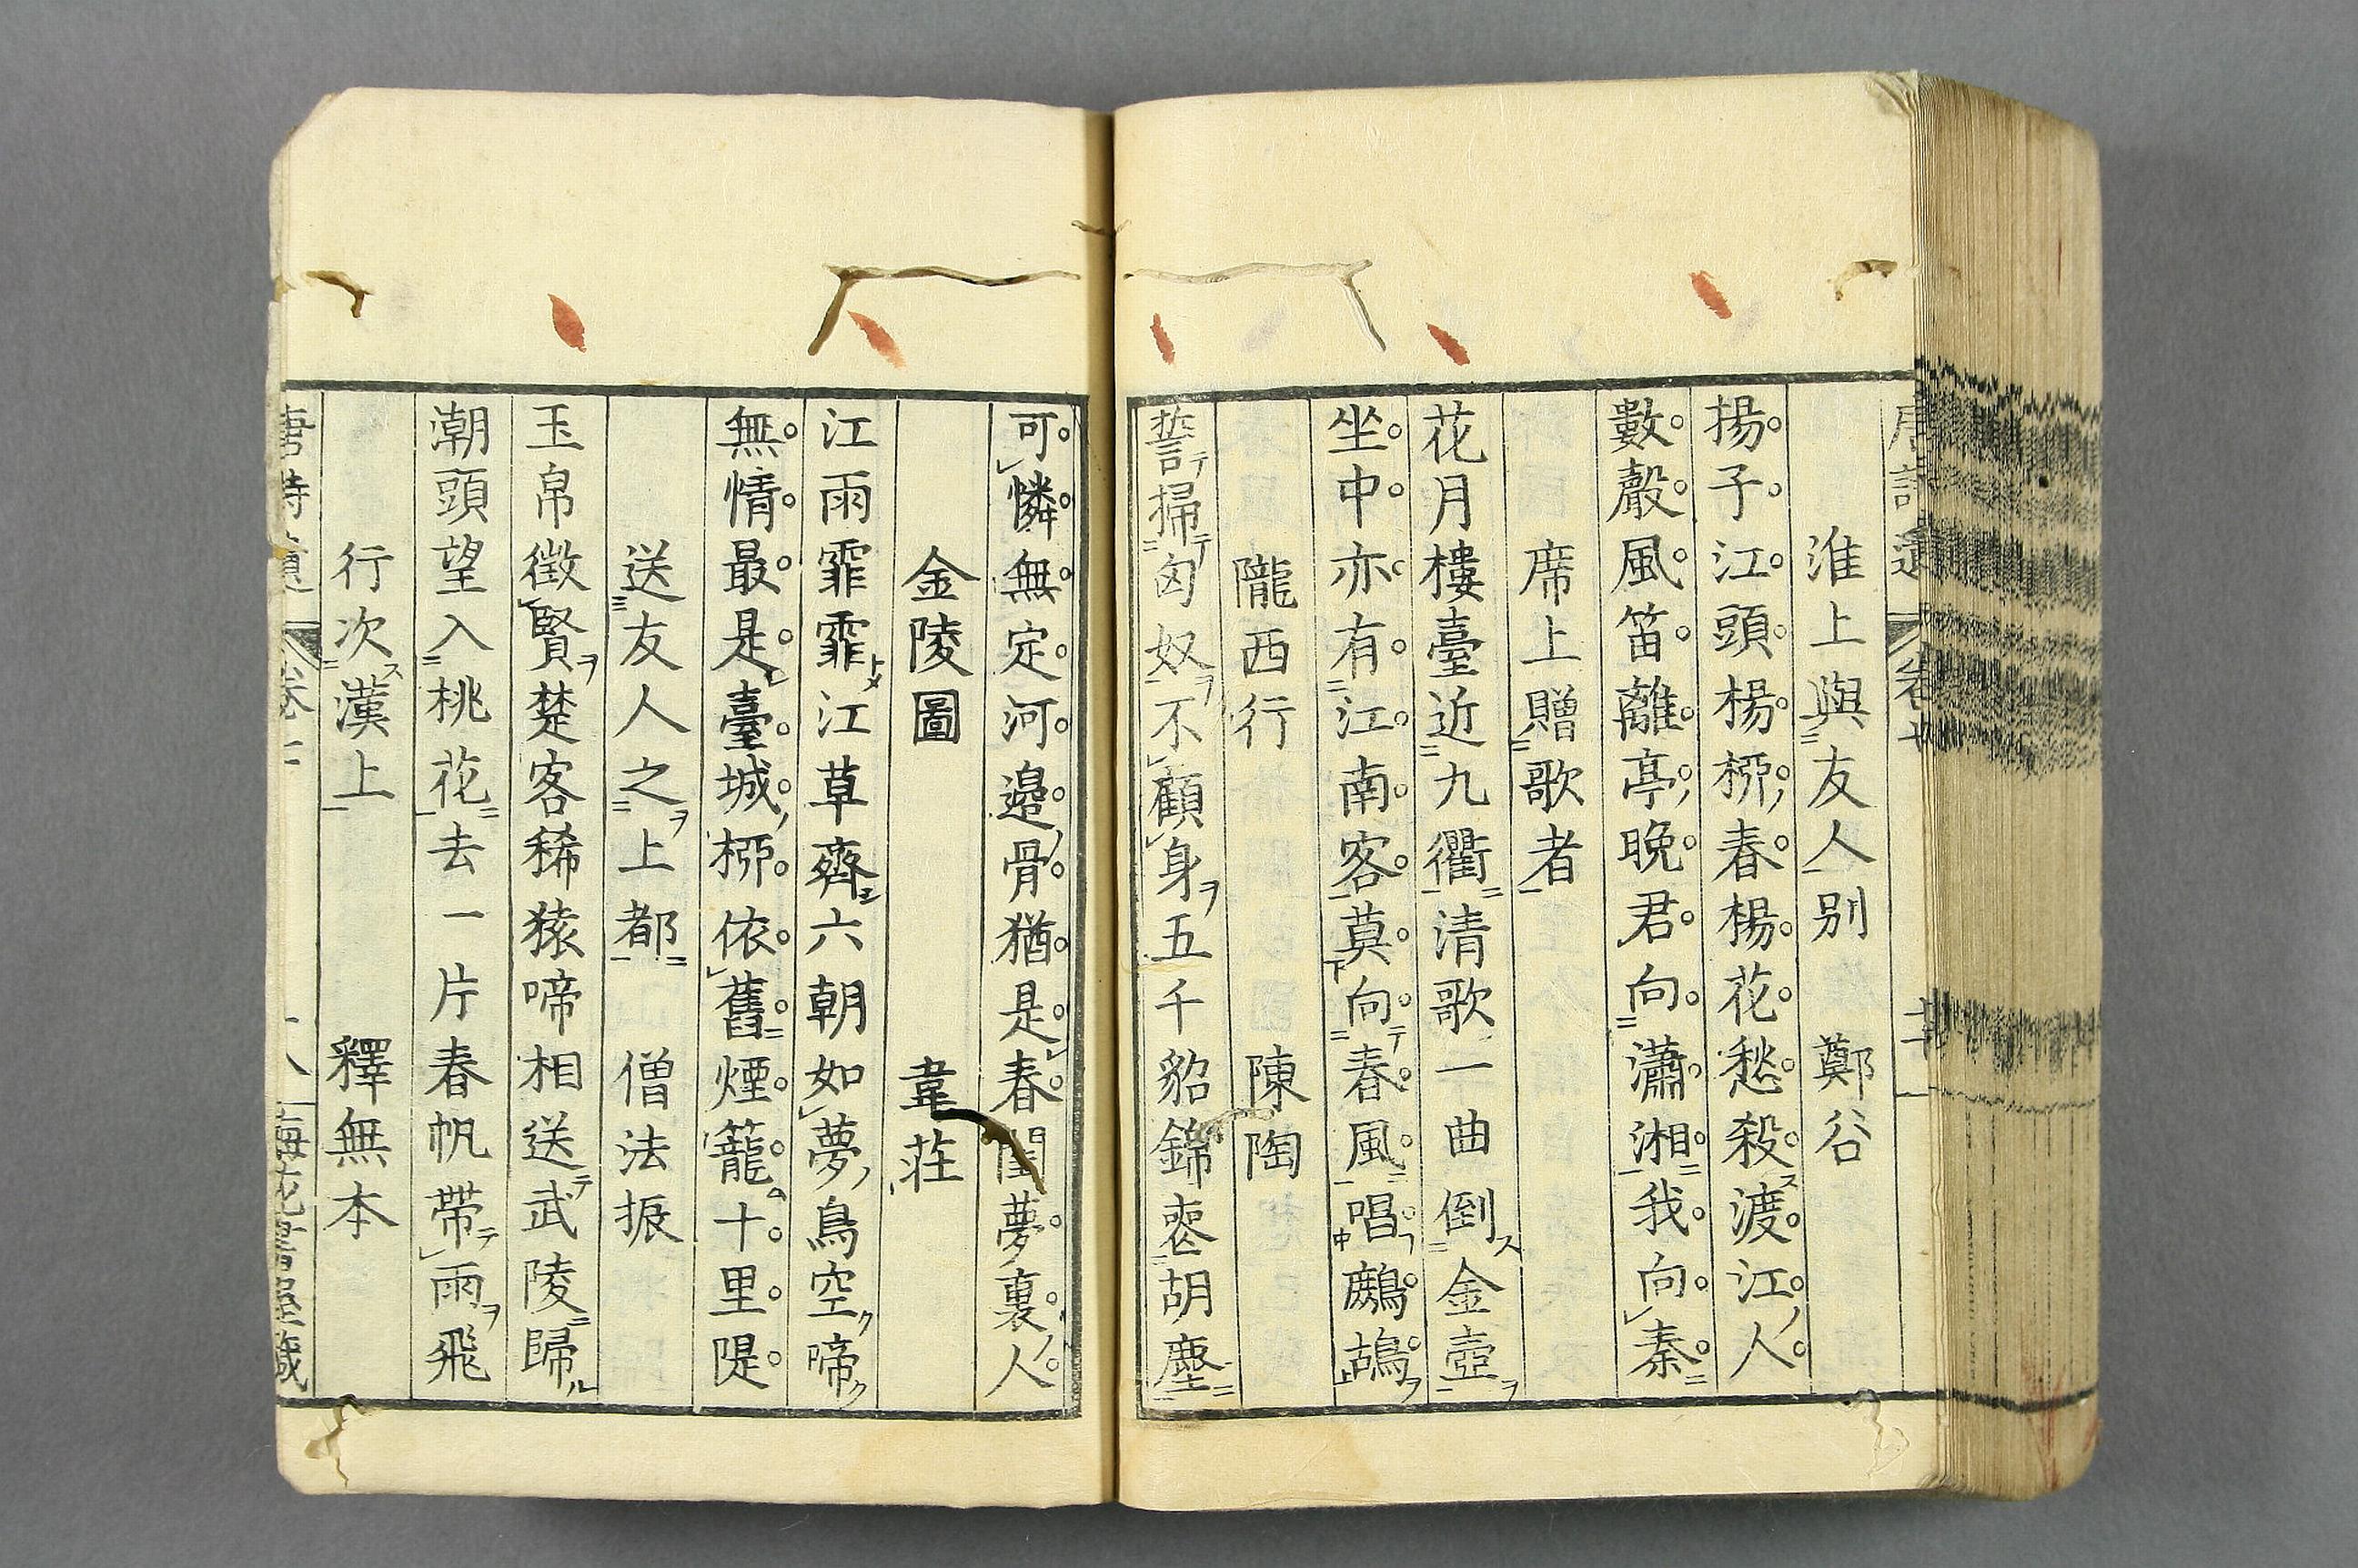 淮上與友人別 鄭谷
揚子江頭楊桺春楊花愁殺渡江人
數聲風笛離亭晚君向瀟湘我向秦
席上贈歌者
花月樓臺近九衢清歌一曲倒金壺
坐中亦有江南客莫向春風唱鷓鴣
隴西行 陳陶
誓掃匈奴不顧身五千貂錦喪胡塵
可憐無定河邊骨猶是春閨夢裏人
金陵圖 韋莊
江雨霏霏江草齊六朝如夢鳥空啼
無情最是臺城桺依舊煙籠十里隄
送友人之上都 僧法振
玉帛徵賢楚客稀猿啼相送武陵歸
潮頭望入桃花去一片春帆帶雨飛
行次漢上 釋無本